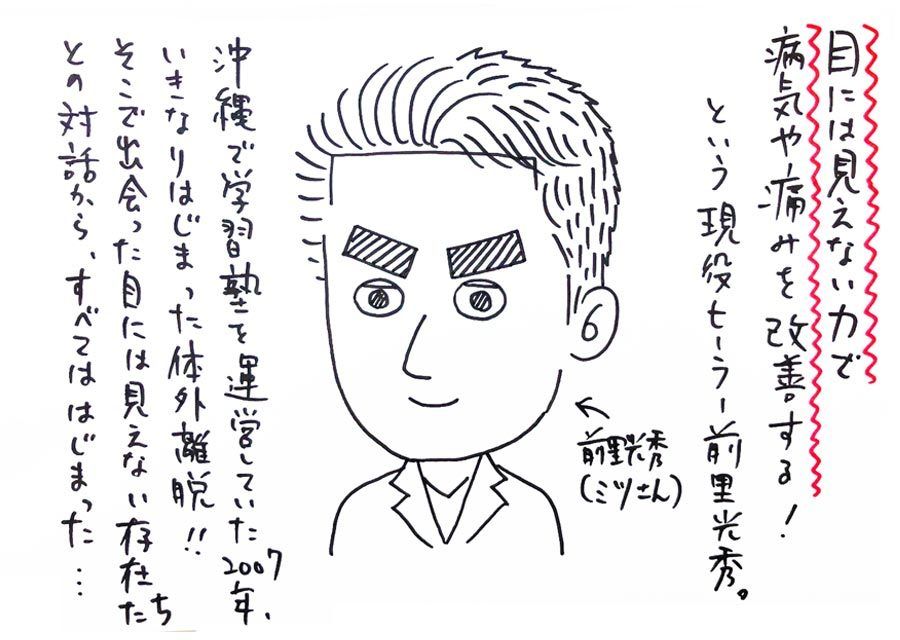 目には見えない力で
病気や痛みを改善する！
という現役ヒーラー前里光秀。
前里光秀
（ミツさん）
沖縄で学習塾を運営していた2007年、
いきなりはじまった体外離脱!!
そこで出会った目には見えない存在たち
との対話から、すべてははじまった…